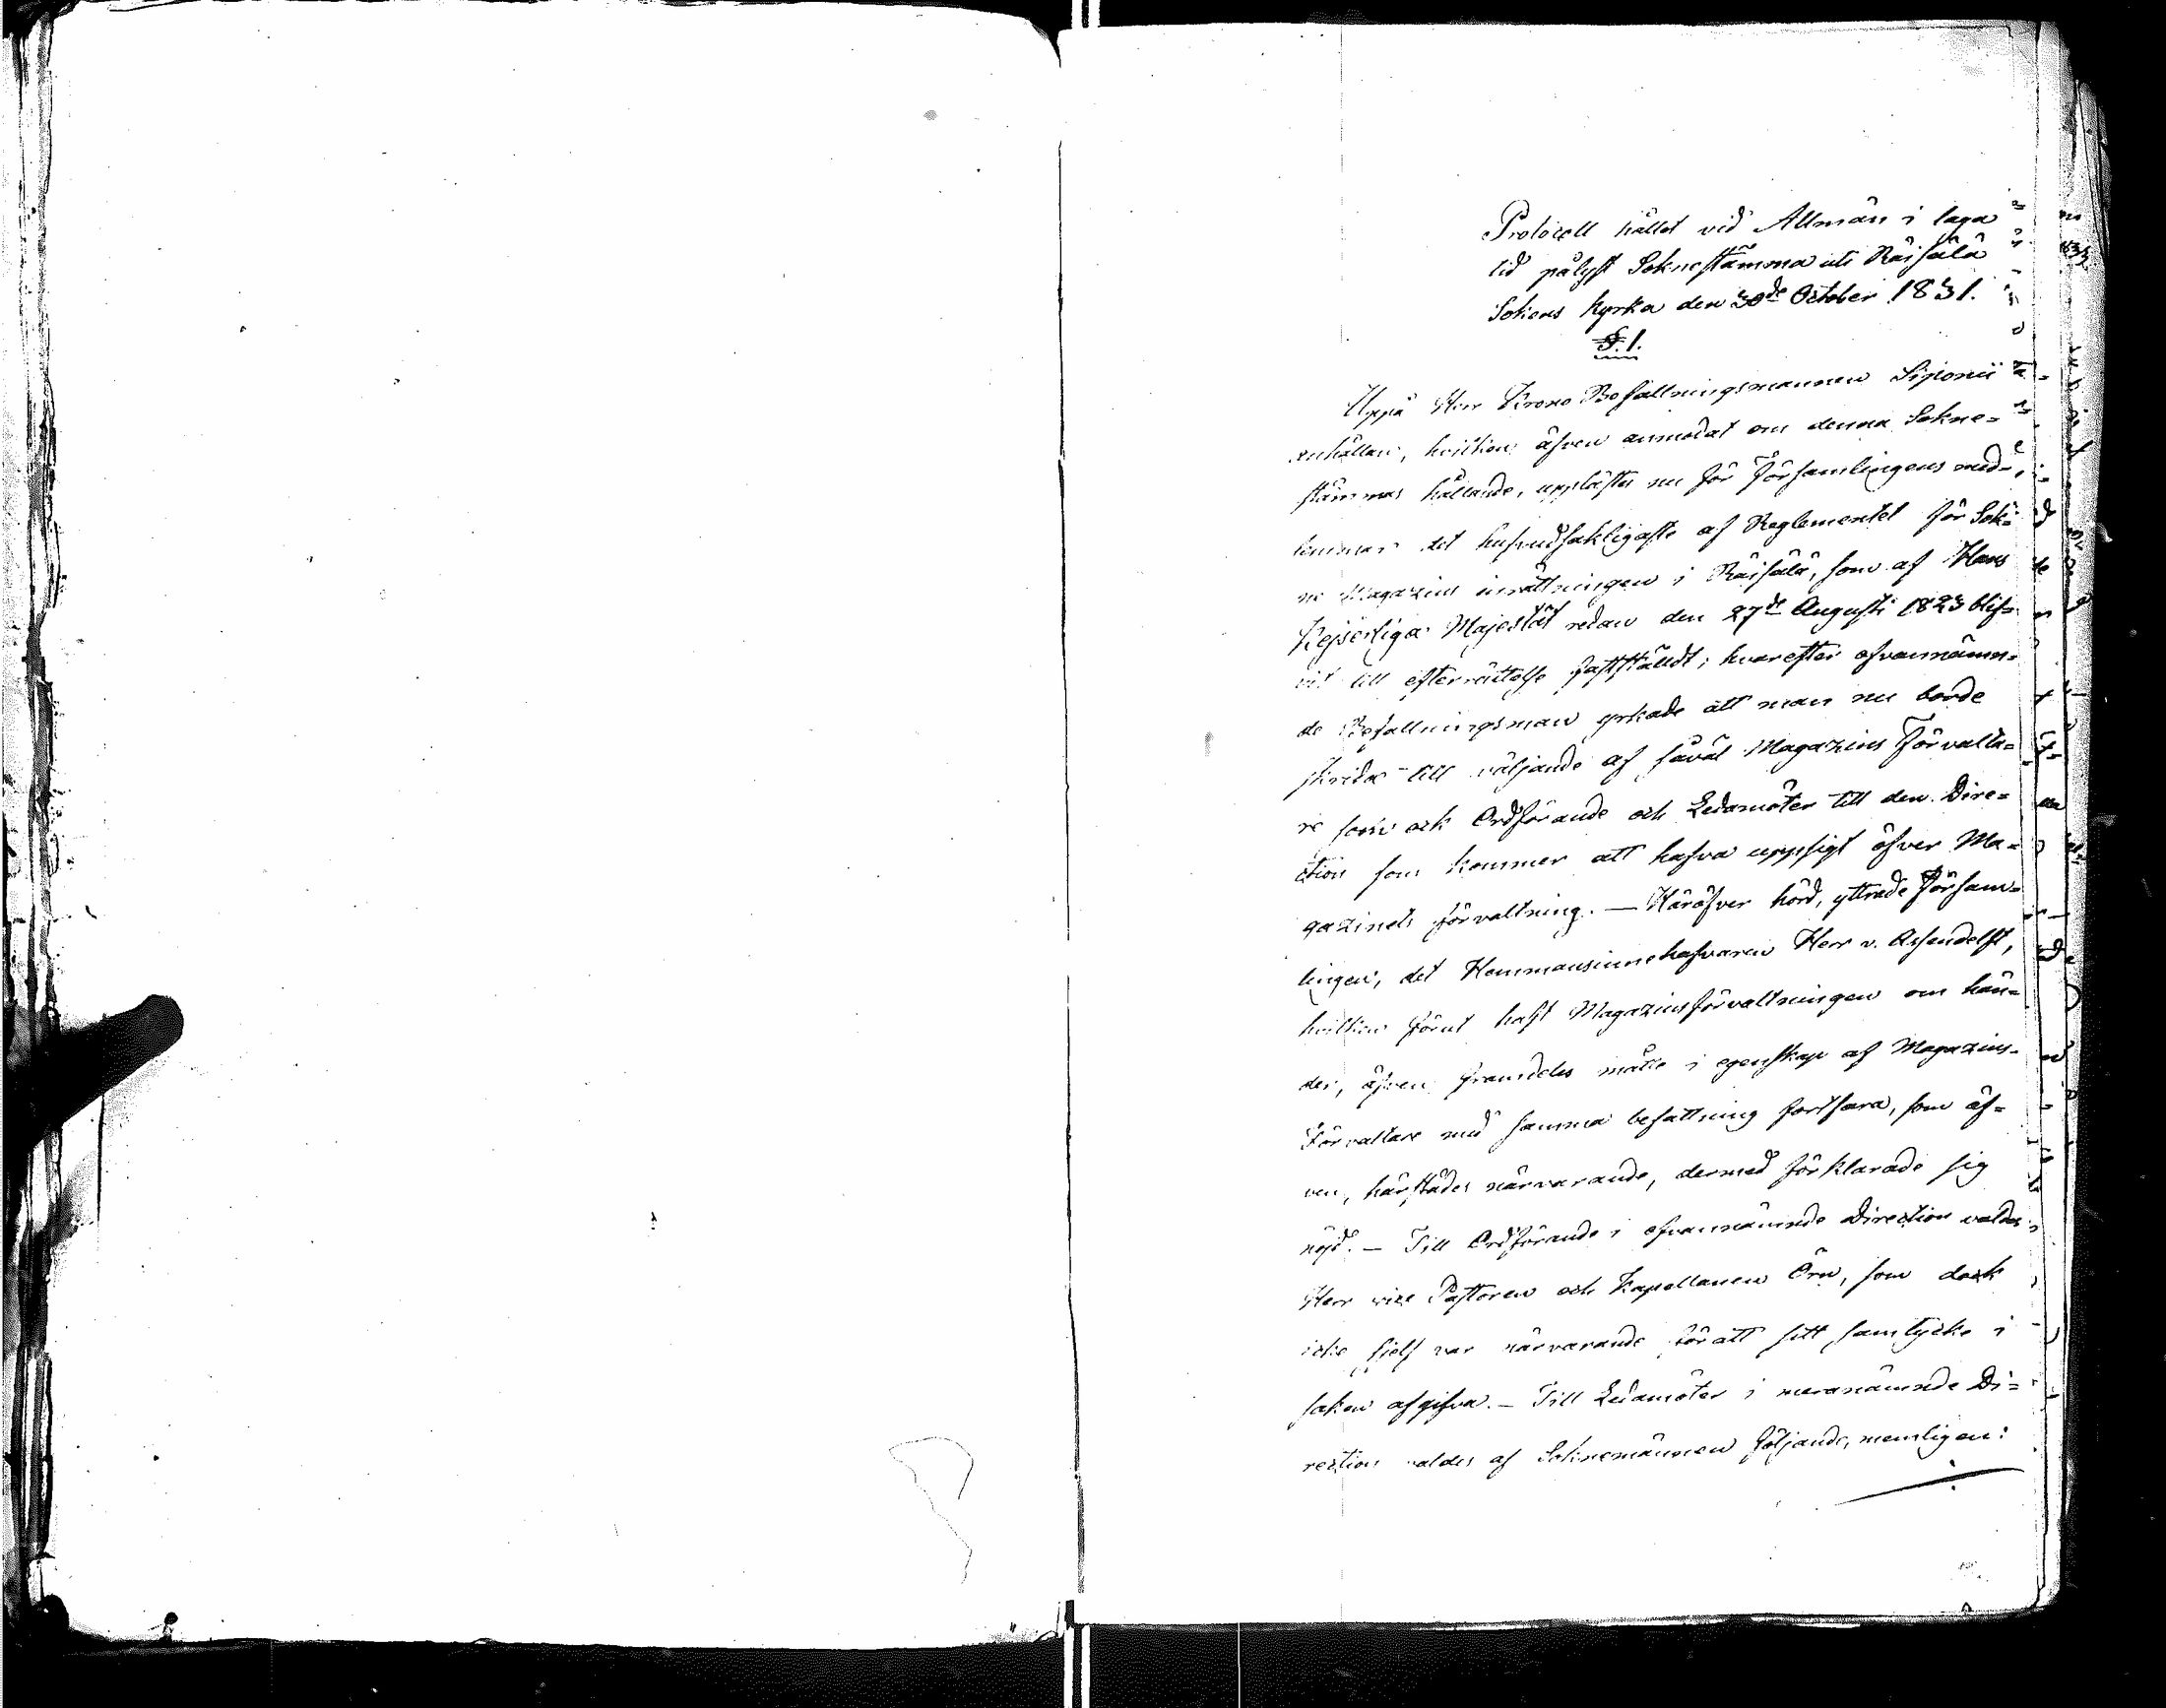 Protocoll hållet vid Allmän i laga
tid pålyst Soknestämma uti Räisälä
Sokens Kyrka den 30de October 1831.
§.1.
Uppå Herr Krono Befallningsmannen
anhållan, hvilken äfven anmodat om denna Sokne-
stämmas hållande, upplästes nu för Församlingens med-
lemmar det hufvudsakligaste af Reglementet för Sok-
ne Magazins inrättningen i Räisälä, som af Hans
Kejserliga Majestät redan den 27de Augusti 1823 blif-
vit till efterrättelse fastställdt; hvarefter ofvannämn-
de Befallningsman yrkade att man nu borde
skrida till väljande af såväl Magazins Förvalta-
re som ock Ordförande och Ledamöter till den Dire-
ction som kommer att hafva uppsigt öfver Ma-
gazinets förvaltning. — Häröfver hörd, yttrade Försam-
lingen, det Hemmansinnehafvaren Herr v. Assendelft,
hvilken förut haft Magazinsförvaltningen om hän-
der, äfven framdeles måtte i egenskap af Magazins-
Förvaltare med samma befattning fortfara, som äf-
ven, härstädes närvarande, dermed förklarade sig
nöjd. — Till Ordförande i ofvannämnde Direction valdes
Herr vice Pastoren och Kapellanen Örn, som dock
icke sjelf var närvarande för att sitt samtycke i
saken afgifva. — Till Ledamöter i meranämnde Di-
rection valdes af Soknemännen följande, nemligen: